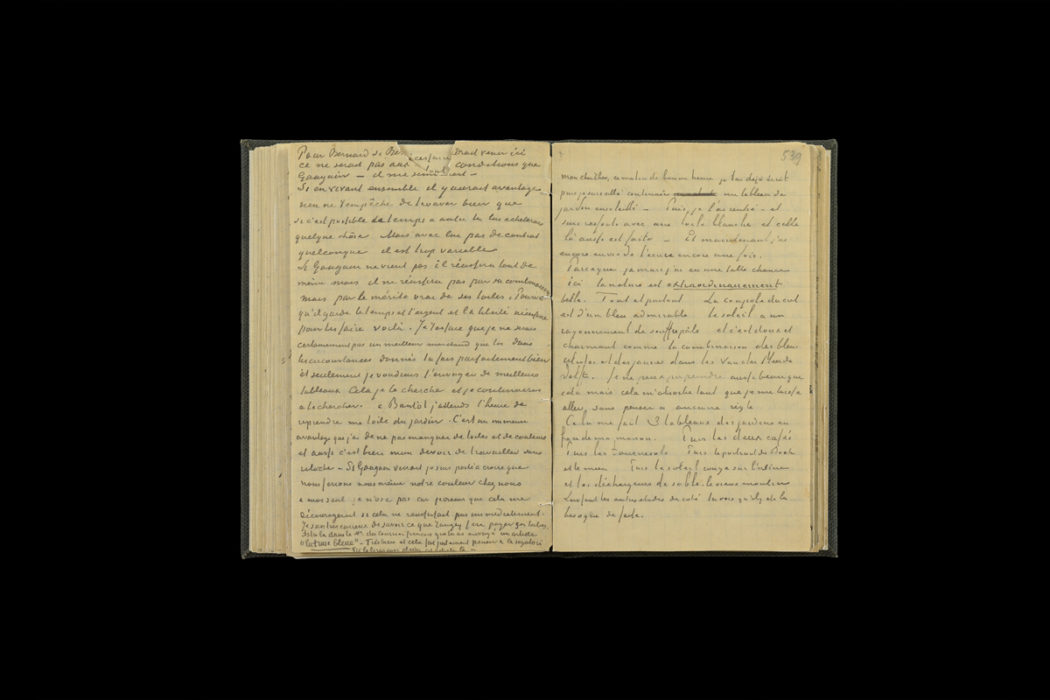 Pour Bernard si Ber
ce ne serait pas aux conditions que
Gauguin — il me semblerait —
Si en vivant ensemble il y aurait avantage
rien ne l'empêche de trouver bien que
si c'est possible de temps a autre tu lui achèteras
quelque chôse Mais avec lui pas de contrat
quelconque il est trop variable
Si Gauguin ne vient pas il réussira tout de
même mais il ne réussira pas par sa combinaison
mais par le mérite vrai de ses toiles. Pourvu
qu'il garde le temps et l'argent et la liberté
pour les faire voilà. Je t'assure que je ne serais
certainement pas un meilleur marchand que toi Dans
les circonstances données tu fais parfaitement bien
et seulement je voudrais t'envoyer de meilleurs
tableaux Cela je le cherche et je continuerai
a le chercher. a Bientôt j'attends l'heure de
reprendre ma toile du jardin. C'est un immense
avantage que j'ai de ne pas manquer de toiles et de couleurs
et aussi c'est bien mon devoir de travailler sans
relache — Si Gauguin venait je suis porté a croire que
nous ferions nous même notre couleur chez nous
a moi seul je n'ose pas car pensons que cela me
découragerait si cela ne réussissait pas immediatement.
Je suis très curieux de savoir ce que Tanguy
"la truie bleue" — Très bien et cela fait justement penser a la
539
mon chulter, ce matin de bonne heure je t'ai déjà écrit
puis je suis allé continuer un tableau de
jardin ensoleillé — Puis je l'ai rentré — et
suis ressorti avec une toile blanche et celle
là aussi est faite — Et maintenant j'ai
encore envie de t'écrire encore une fois.
Parce que jamais j'ai eu une telle chance
ici la nature est extraordinairement
belle. Tout et partout La coupole du ciel
est d'un bleu admirable le soleil a un
rayonnement de souffre pâle et c'est doux et
charmant comme la combinaison des bleus
celestes et des jaunes dans les Van der Meer de
Delft. Je ne peux peindre aussi beau que
cela mais cela m'absorbe tant que je me laisse
aller sans penser a aucune règle
Cela me fait 3 tableaux des jardins en
face de ma maison. Puis les deux cafés
Puis les tournesols Puis le portrait de Boch
et le mien Puis le soleil rouge sur l'usine
et les déchargeurs de sable. le vieux moulin
Laissant les autres études de coté tu vois qu'il y a de la
besogne de faite.